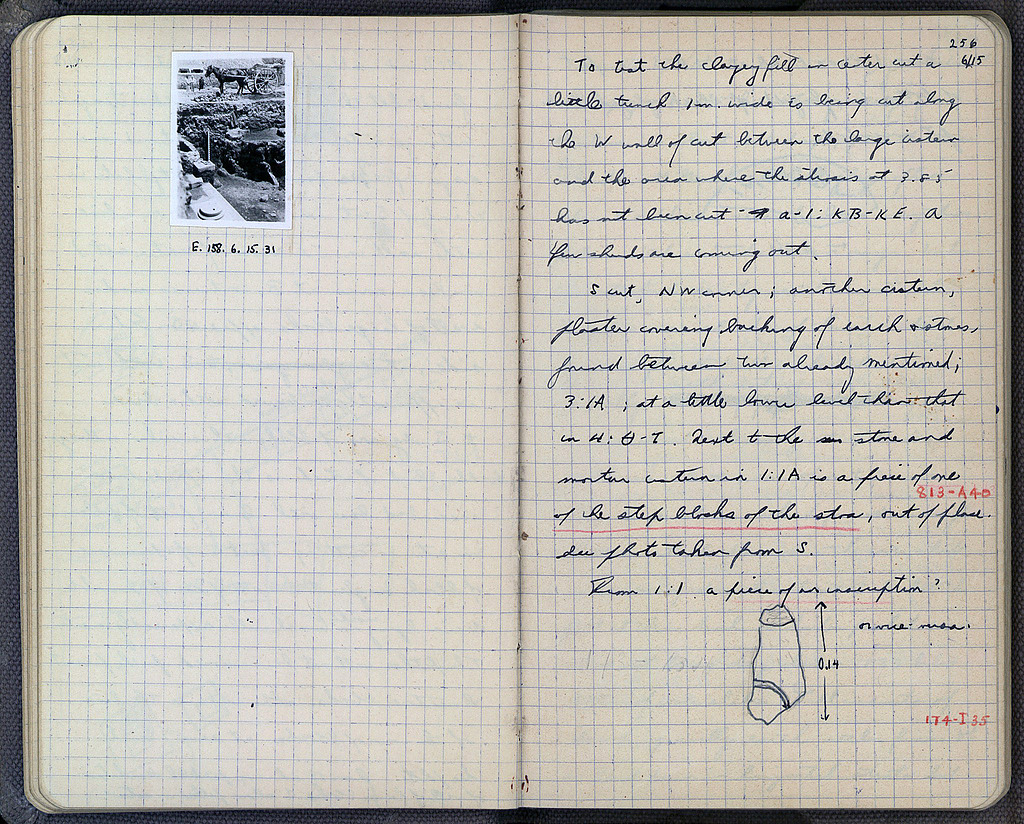 E. 158. 6. 15. 31
256
6/15
To test the clayey fill in center cut a
little trench 1 m. wide is being cut along
the W wall of cut between the large cistern
and the area where the stosis at 3.85
has not been cut - a-1: KB-KE. A
few sherds are coming out.
S cut, NW corner; another cistern,
plaster covering backing of earch & stones,
found between two already mentioned;
3:1A ; at a little lower level than that
in 4: Θ-T. Next to the stone and
mortar cistern in 1:1A is a piece of one
813-A40
of the step blocks of the stoa, out of place.
See photo taken from S.
From 1:1. a piece of an inscription?
or vice-versa.
0.14
174-I 35